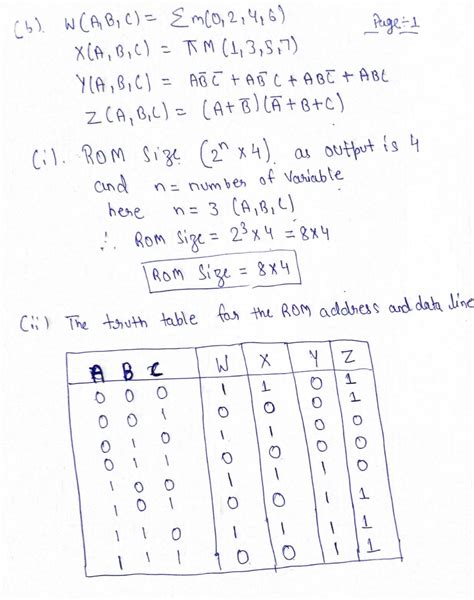 (b). W(A,B,C) = Σm(0,2,4,6) Page:-1
X(A,B,C) = πM(1,3,5,7)
Y(A,B,C) = AB̄C̄ + AB̄C + ABC̄ + ABC
Z(A,B,C) = (A+B̄)(Ā+B+C)
(i). ROM Size (2ⁿ×4). as output is 4
and n = number of variable
here n = 3 (A,B,C)
∴ ROM Size = 2³×4 = 8×4
ROM Size = 8×4
(ii) The truth table for the ROM address and data line
A B C W X Y Z
0 0 0 1 1 0 1
0 0 1 0 0 0 1
0 1 0 1 1 0 0
0 1 1 0 0 0 0
1 0 0 1 1 1 0
1 0 1 0 0 1 1
1 1 0 1 1 1 1
1 1 1 0 0 1 1